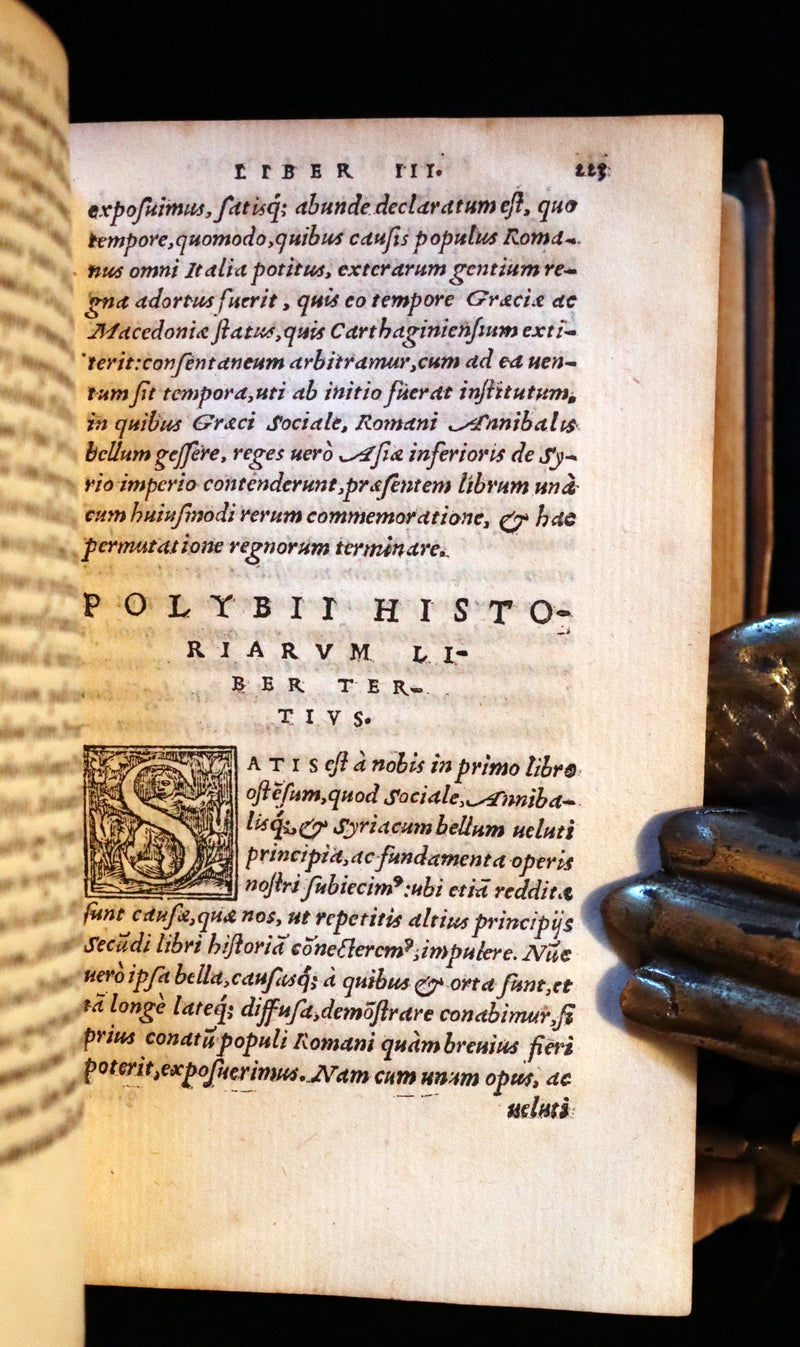 LIBER III. 223
expoſuimus, ſatisq́; abunde declaratum eſt, quo
tempore, quomodo, quibus cauſis populus Roma-
nus omni Italia potitus, exterarum gentium re-
gna adortus fuerit, quis eo tempore Græciæ ac
Macedoniæ ſtatus, quis Carthaginienſium exti-
terit: conſentaneum arbitramur, cum ad ea uen-
tum ſit tempora, uti ab initio fuerat inſtitutum,
in quibus Græci Sociale, Romani Annibalis
bellum geſſere, reges uerò Aſiæ inferioris de Sy-
rio imperio contenderunt, præſentem librum unà
cum huiuſmodi rerum commemoratione, & hac
permutatione regnorum terminare.
POLYBII HISTO-
RIARVM LI-
BER TER-
TIVS.
SATIS eſt à nobis in primo libro
oſtẽſum, quod Sociale, Anniba-
lisq́;, & Syriacum bellum ueluti
principia, ac fundamenta operis
noſtri ſubiecimꝰ: ubi etiã redditæ
ſunt cauſæ, quæ nos, ut repetitis altius principijs
Secũdi libri hiſtoriã cõnecteremꝰ, impulere. Nũc
uerò ipſa bella, cauſasq́; à quibus & orta ſunt, et
tã longè lateq́; diffuſa, demõſtrare conabimur, ſi
prius conatũ populi Romani quàm breuius fieri
poterit, expoſuerimus. Nam cum unum opus, ac
ueluti